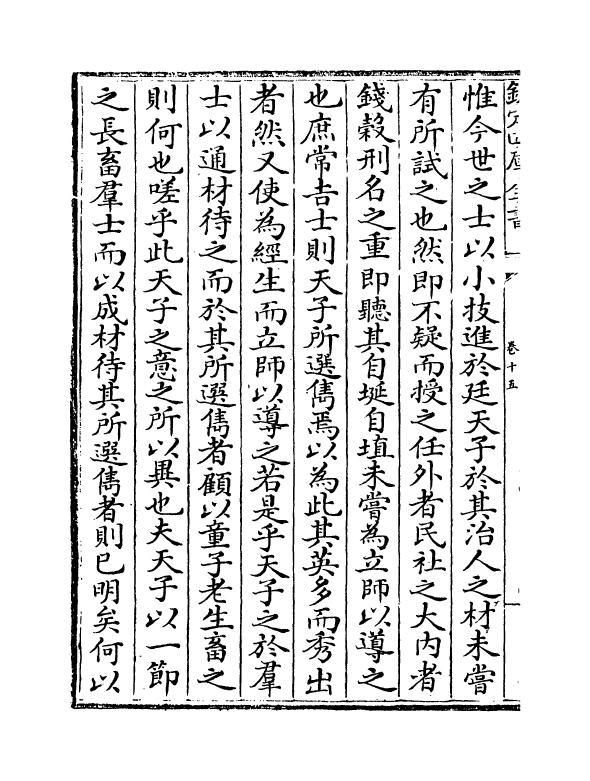 欽定四庫全書
卷十五
惟今世之士以小技進於廷天子於其治人之材未嘗
有所試之也然即不疑而授之任外者民社之大内者
錢穀刑名之重即聽其自埏自埴未嘗為立師以導之
也庶常吉士則天子所選儁焉以為此其英多而秀出
者然又使為經生而立師以導之若是乎天子之於羣
士以通材待之而於其所選儁者顧以童子老生畜之
則何也嗟乎此天子之意之所以異也夫天子以一節
之長畜羣士而以成材待其所選儁者則已明矣何以